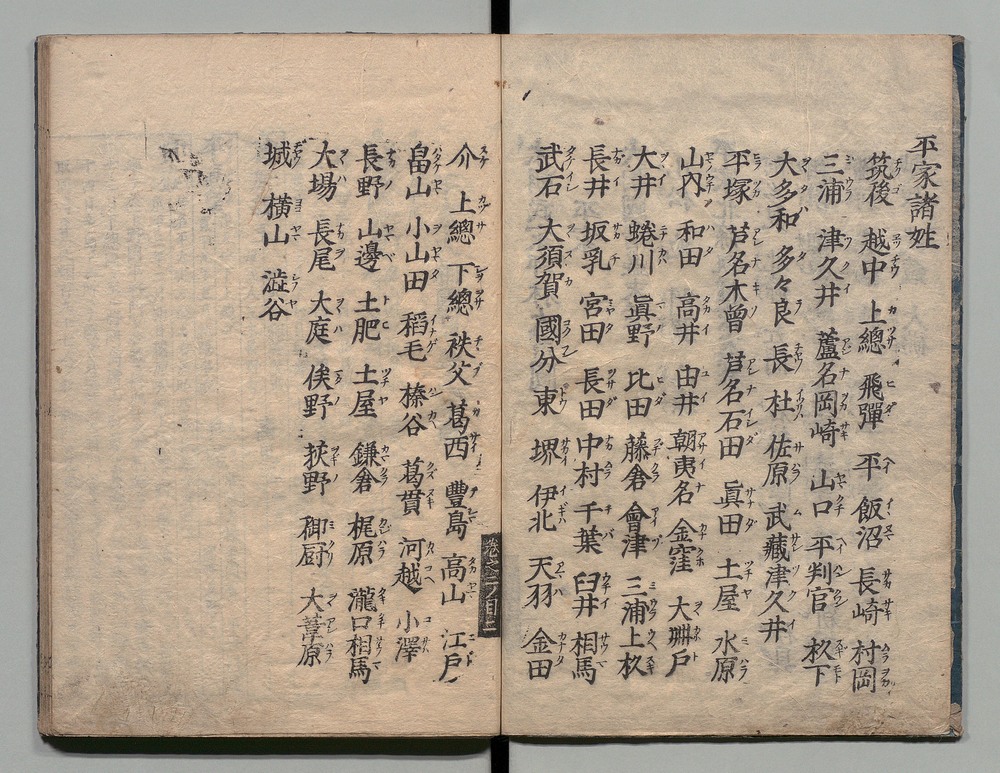 平家諸姓
筑後 越中 上總 飛彈 平 飯沼 長崎 村岡
三浦 津久井 蘆名 岡崎 山口 平判官 杦下
大多和 多々良 長 杜 佐原 武藏 津久井
平塚 芦名 木曾 芦名 石田 眞田 土屋 水原
山内 和田 高井 由井 朝夷名 金窪 大瀬戸
大井 蜷川 眞野 比田 藤倉 會津 三浦 上杦
長井 坂乳 宮田 長田 中村 千葉 臼井 相馬
武石 大須賀 國分 東 堺 伊北 天羽 金田
介 上總 下總 秩父 葛西 豐島 高山 江戸
畠山 小山田 稻毛 榛谷 葛貫 河越 小澤
長野 山邊 土肥 土屋 鎌倉 梶原 瀧口 相馬
大場 長尾 大庭 俣野 荻野 御厨 大葦原
城 横山 澁谷
卷之二ノ目二